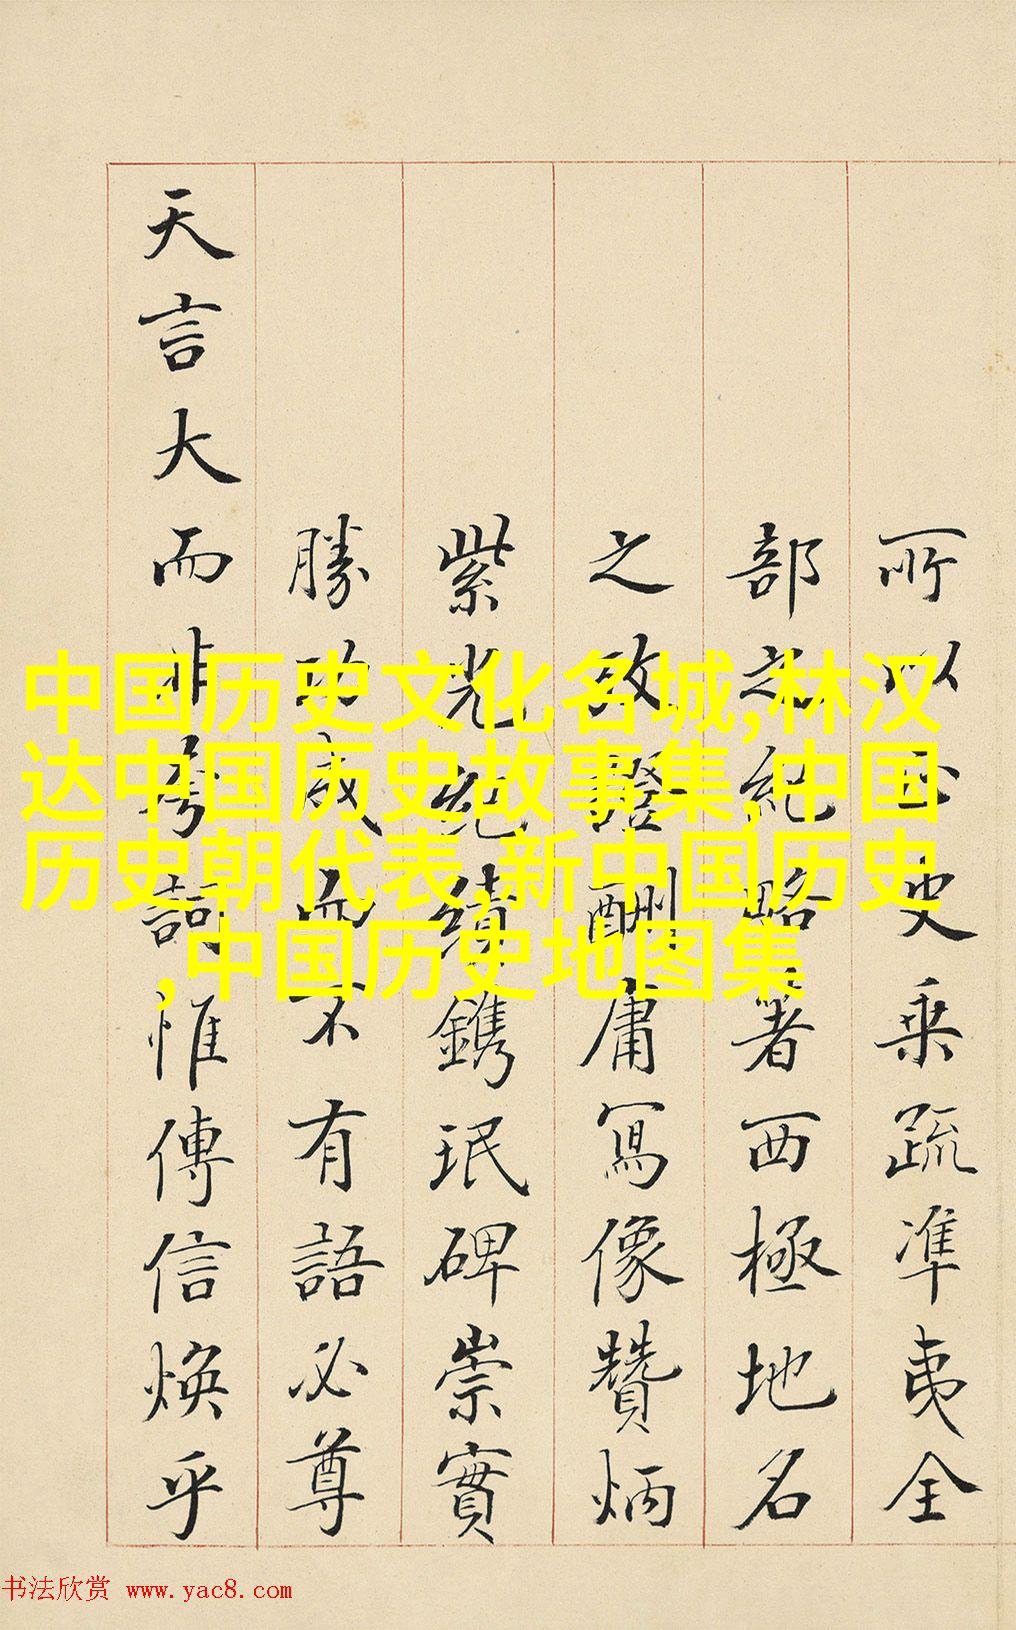 所以正史乘疏準夷全
部之紀略著西極地名
之攷證酬庸寫像贊炳
紫光紀績鐫珉碑崇實
勝功成而不有語必尊
天言大而非夸詞惟傳信煥乎
中国历史文化名城,林汉
达中国历史故事集,中国
历史朝代表,新中国历史
,中国历史地图集
书法欣赏 www.yac8.com